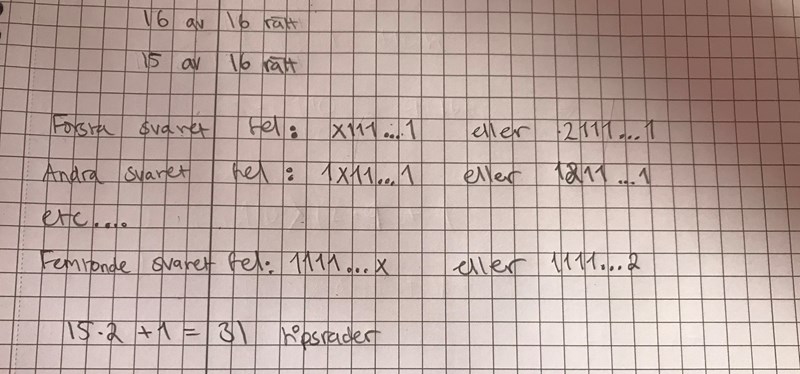 16 av 16 rätt
15 av 16 rätt
Forsra svaret fel: x111...1 eller 2111...1
Andra svaret fel: 1x11...1 eller 1211...1
etc....
Femronde svaret fel: 1111...x eller 1111...2
15.2 + 1 = 31 tipsrader